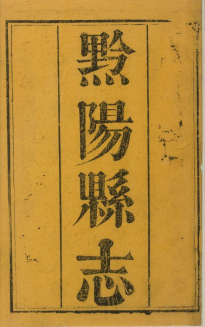 黔陽縣志